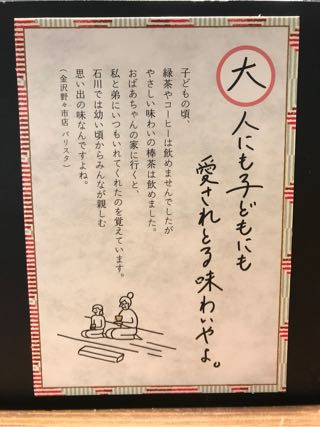 大人にも子どもにも
愛されとる味わいやよ。
子どもの頃、
緑茶やコーヒーは飲めませんでしたが
やさしい味わいの棒茶は飲めました。
おばあちゃんの家に行くと、
私と弟にいつもいれてくれたのを覚えています。
石川では幼い頃からみんなが親しむ
思い出の味なんですよね。
（金沢野々市店 バリスタ）